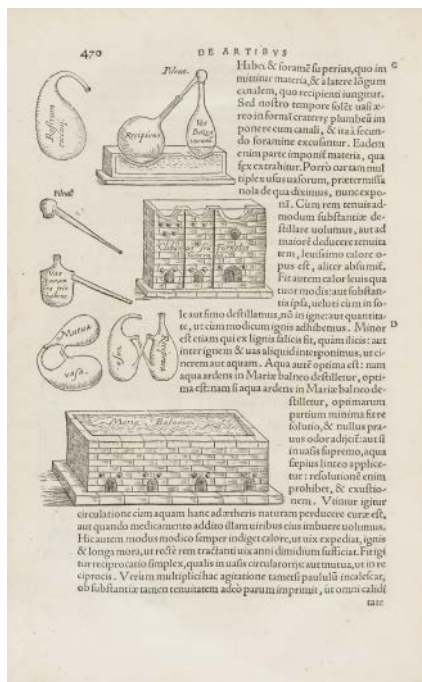 470
DE ARTIBVS
Pileat.
Rostrum
Recipiens
Pileat.
Mutua
vasa.
Maria Balneum
Habet & foramē superius, quo im
mittitur materia, & à latere lōgum
canalem, quo recipienti iungitur.
Sed nostro tempore solēt uasi æ-
reo in formā craterę plumbeū im
ponere cum canali, & ita à secun-
do foramine excusantur. Eadem
enim parte imponiť materia, qua
fęx extrahitur. Porrò cur tam mul
tiplex usus uasorum, prætermissa
nola de qua diximus, nunc expo-
nā. Cùm rem tenuis ad-
modum substantiæ de-
stillare uolumus, aut ad
maiorē deducere tenuita
tem, leuissimo calore o-
pus est, aliter absumiť.
Fit autem calor leuis qua
tuor modis: aut substan-
tia ipsa, ueluti cùm in so-
le aut fimo destillamus, nō in igne: aut quantita-
te, ut cùm modicum ignis adhibemus. Minor
est etiam qui ex lignis salicis fit, quàm ilicis: aut
inter ignem & uas aliquid interponimus, ut ci-
nerem aut aquam. Aqua autē optima est: nam
aqua ardens in Mariæ balneo destilletur, opti-
ma est: nam si aqua ardens in Mariæ balneo de-
stilletur, optimarum
partium minima fit re
solutio, & nullus pra-
uus odor adijcit: aut si
in uasis supremo, aqua
sæpius linteo applice-
tur: resolutionē enim
prohibet, & exustio-
nem. Vtimur igitur
circulatione cùm aquam hanc ad ætheris naturam perducere curæ est,
aut quando medicamento addito illam uiribus eius imbuere uolumus.
Hic autem modus modico semper indiget calore, ut uix expediat, ignis
& longa mora, ut rectè rem tractanti uix anni dimidium sufficiat. Fit igi
tur reciprocatio simplex, qualis in uasis circulatorijs: aut mutua, ut in re
ciprocis. Verùm multiplici hac agitatione tametsi paululū incalescat,
ob substantiæ tamen tenuitatem adeò parum imprimit, ut omni calidi
tate
C
D